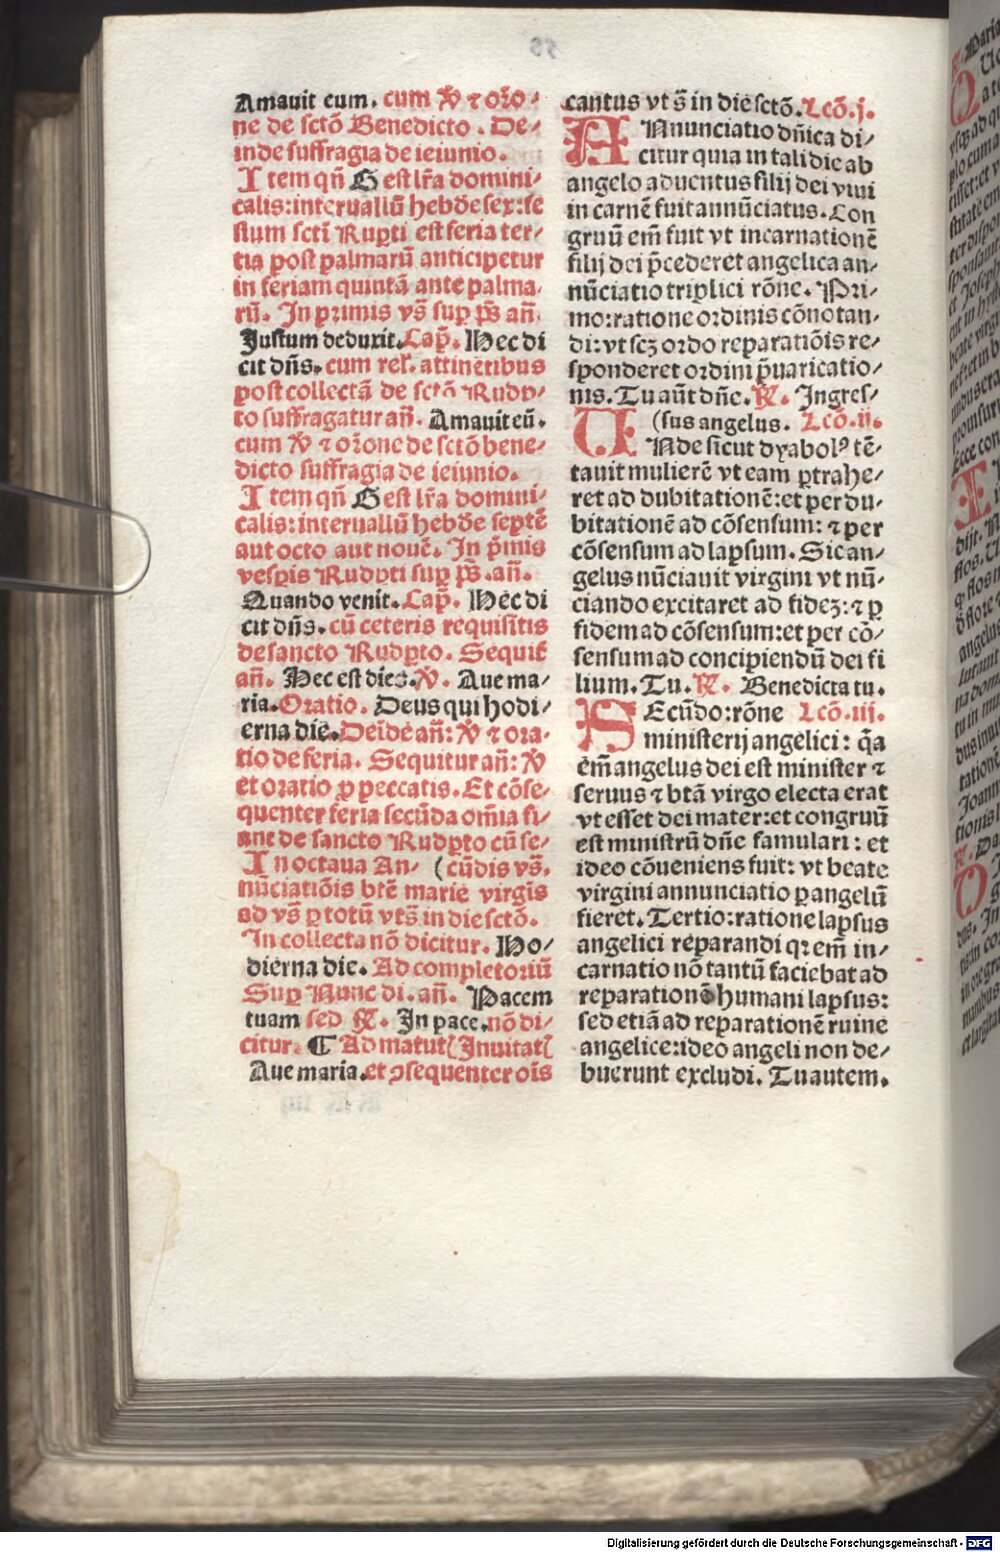 Amauit eum. cum ꝟ ⁊ orō⸗
ne de sctō Benedicto. De⸗
inde suffragia de ieiunio.
Item qn̄ G est lr̄a domini⸗
calis: interuallū hebdē sex: fe
stum sctī Rupti est feria ter⸗
tia post palmarū anticipetur
in feriam quintā ante palma⸗
rū. In primis vs̄ sup ps̄ an̄.
Justum deduxit. Cap̄. Hec di
cit dn̄s. cum rel'. attinētibus
post collectā de sctō Rudp⸗
to suffragatur an̄. Amauit eū.
cum ꝟ ⁊ orōne de sctō bene⸗
dicto suffragia de ieiunio.
Item qn̄ G est lr̄a domini⸗
calis: interuallū hebdē septē
aut octo aut nouē. In p̄mis
vesꝑis Rudꝑti sup ps̄. an̄.
Quando venit. Cap̄. Hec di
cit dn̄s. cū ceteris requisitis
de sancto Rudꝑto. Sequit̄
an̄. Hec est dies. ꝟ. Aue ma⸗
ria. Oratio. Deus qui hodi⸗
erna die. Deīde an̄: ꝟ ⁊ ora⸗
tio de feria. Sequitur an̄: ꝟ
et oratio ꝓ peccatis. Et cōse⸗
quenter feria secūda om̄ia fi⸗
ant de sancto Rudꝑto cū se⸗
In octaua An⸗ (cūdis vs̄.
nūciatiōis btē marie virgīs
ad vs̄ ꝑ totū vts̄ in die sctō.
In collecta nō dicitur. Ho⸗
dierna die. Ad completoriū
Suꝑ Nunc di. an̄. Pacem
tuam sed ℟. In pace. nō di⸗
citur. ¶ Ad matut̄ Inuitat̄
Aue maria. et ꝯsequenter oīs
cantus vt s̄ in die sctō. Lcō.j.
ANnunciatio dn̄ica di⸗
citur quia in tali die ab
angelo aduentus filij dei viui
in carnē fuit annūciatus. Con
gruū em̄ fuit vt incarnationē
filij dei p̄cederet angelica an⸗
nūciatio triplici rōne. Pri⸗
mo: ratione ordinis cōnotan⸗
di: vt scz ordo reparatiōis re⸗
sponderet ordini p̄uaricatio⸗
nis. Tu aūt dn̄e. ℟. Ingres⸗
(sus angelus. Lcō.ij.
UNde sicut dyabolꝰ tē⸗
tauit mulierē vt eam ꝑtrahe⸗
ret ad dubitationē: et per du⸗
bitationē ad cōsensum: ⁊ per
cōsensum ad lapsum. Sic an⸗
gelus nūciauit virgini vt nū⸗
ciando excitaret ad fidez: ⁊ ꝑ
fidem ad cōsensum: et per cō⸗
sensum ad concipiendū dei fi
lium. Tu. ℟. Benedicta tu.
SEcūdo: rōne Lcō.iij.
ministerij angelici: q̄a
em̄ angelus dei est minister ⁊
seruus ⁊ btā virgo electa erat
vt esset dei mater: et congruū
est ministrū dn̄e famulari: et
ideo cōueniens fuit: vt beate
virgini annunciatio ꝑ angelū
fieret. Tertio: ratione lapsus
angelici reparandi qꝛ em̄ in⸗
carnatio nō tantū faciebat ad
reparationē humani lapsus:
sed etiā ad reparationē ruine
angelice: ideo angeli non de⸗
buerunt excludi. Tu autem.
Digitalisierung gefördert durch die Deutsche Forschungsgemeinschaft - DFG